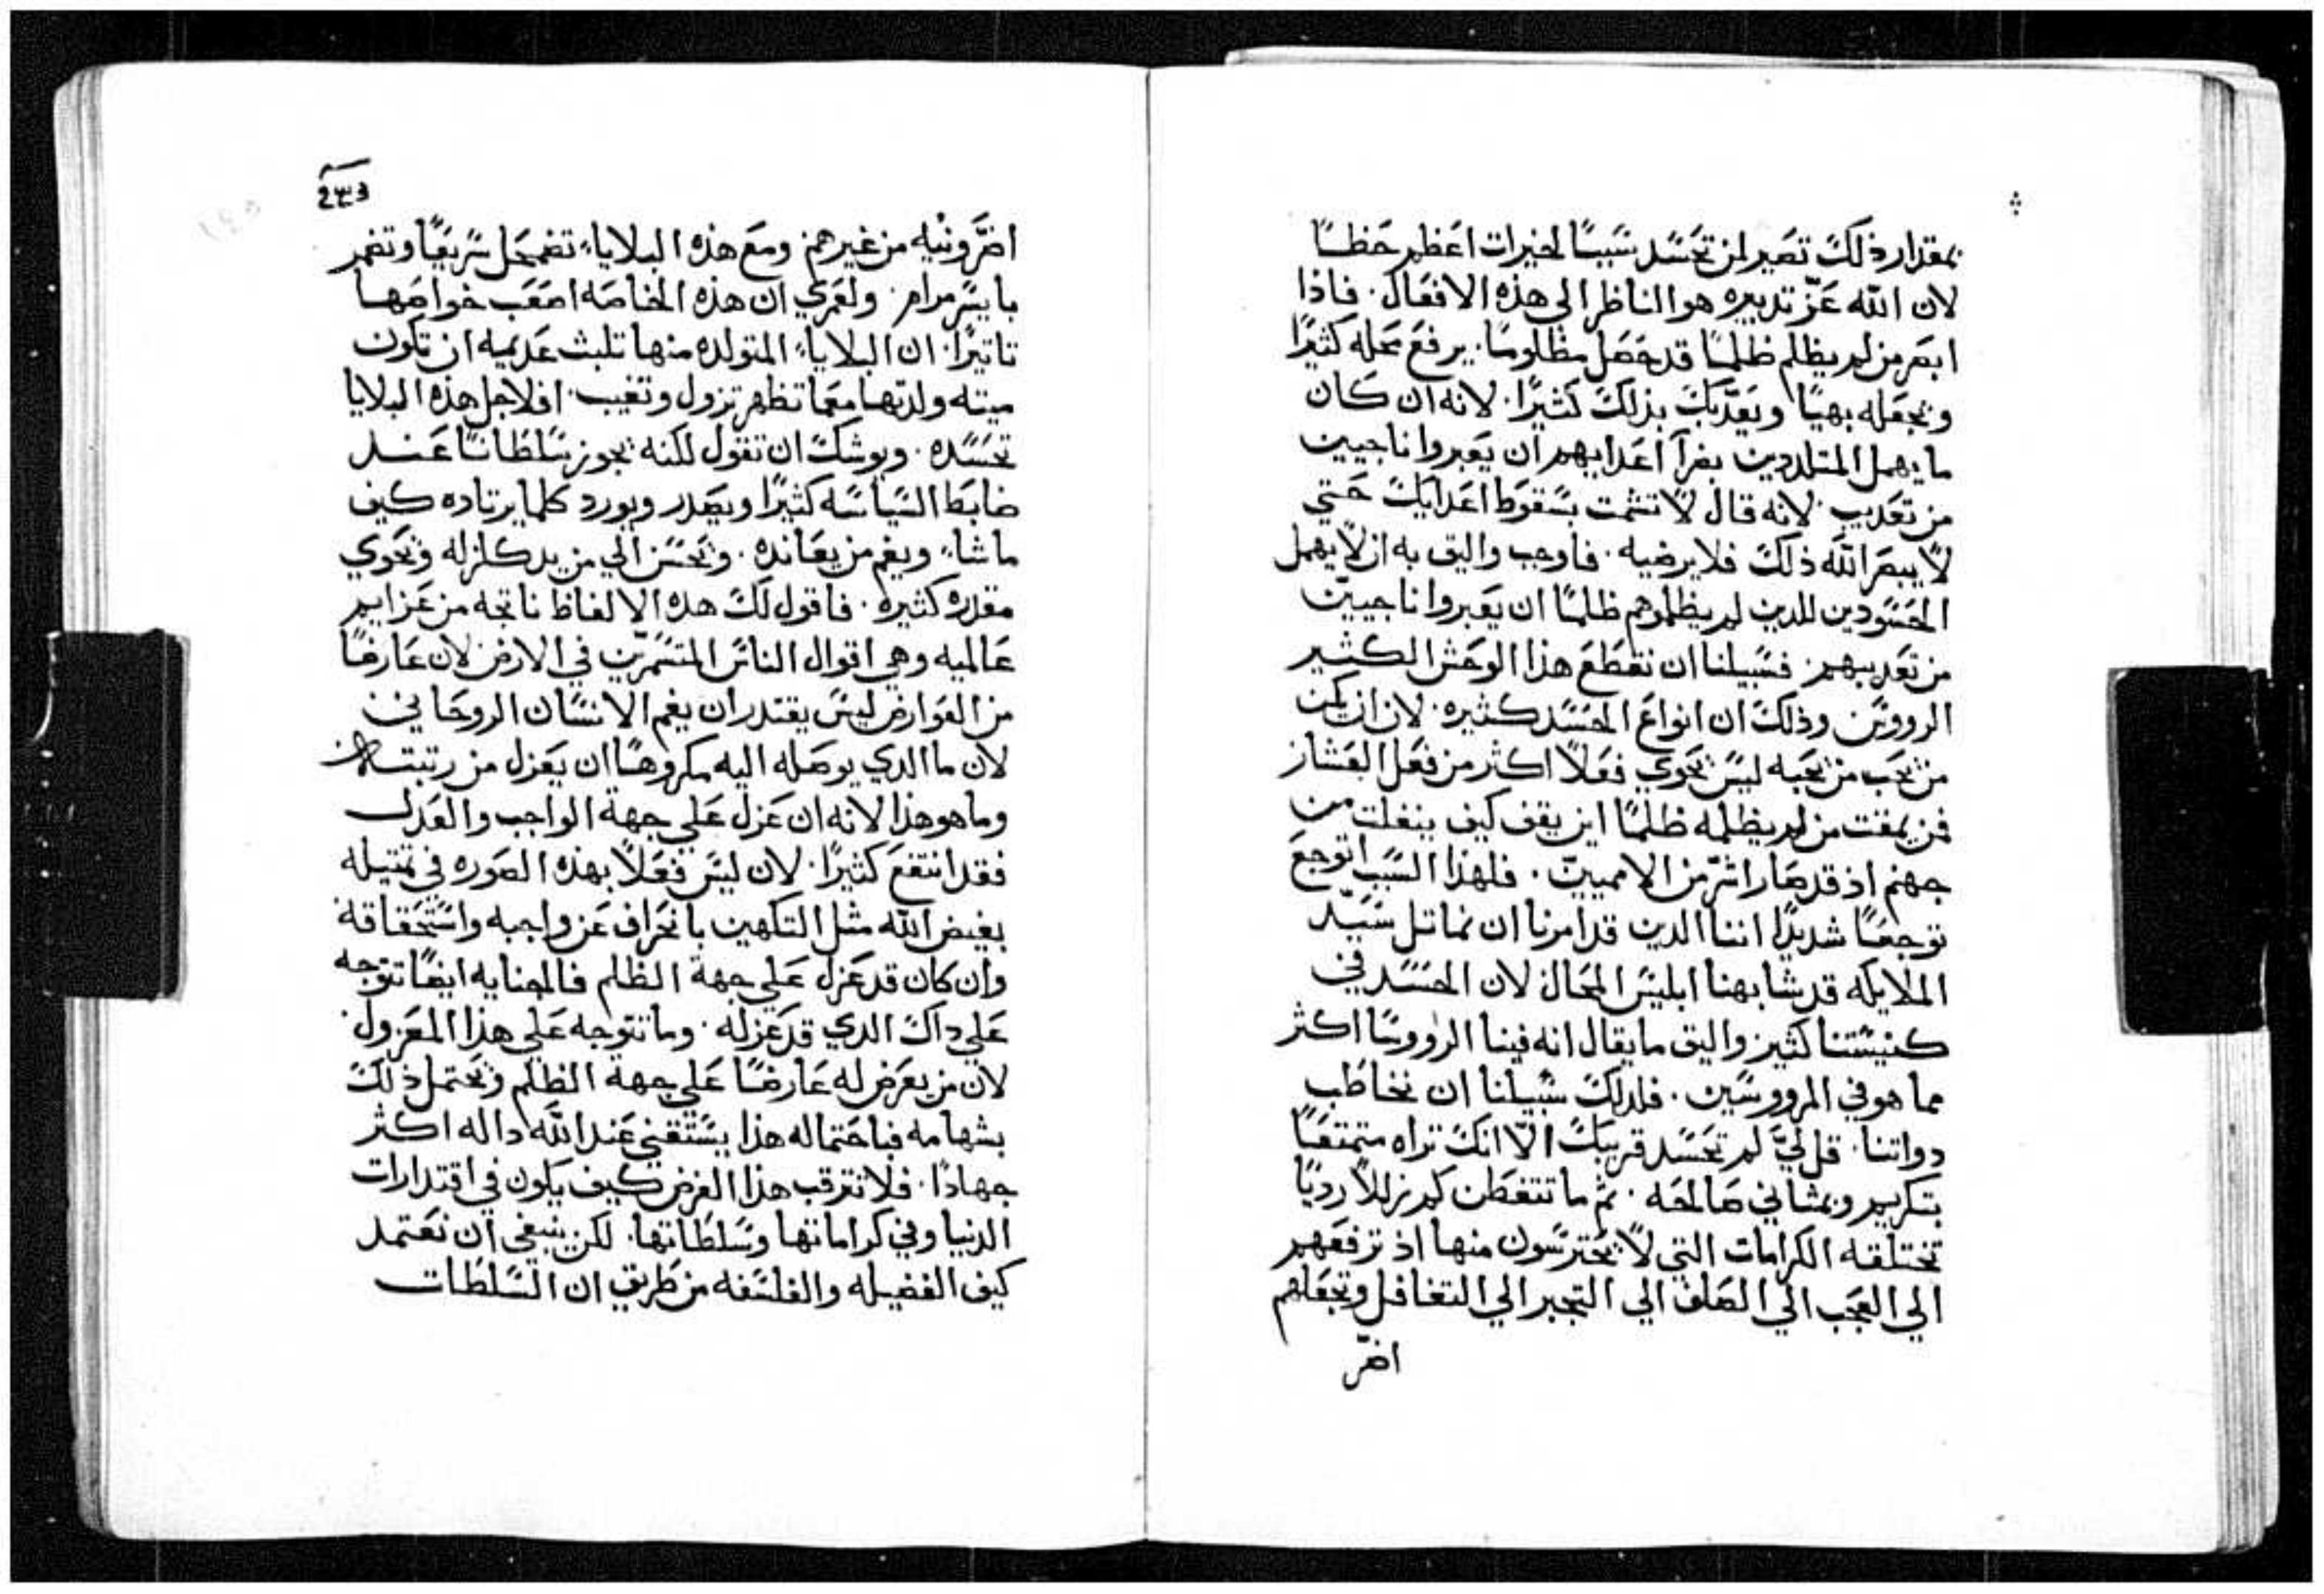 بمقدار ذلك تصير لمن تحسد سببًا لخيرات اعظم حظًا
لان الله عزّ تدبيره هو الناظر الي هذه الافعال. فاذا
ابصر من لم يظلم ظلمًا قد حصل مظلومًا. يرفع محله كثيرًا
ويجعله بهيًا ويعذبك بذلك كثيرًا. لانه ان كان
ما يهمل المتلددين بضراء اعدايهم ان يعبروا ناجيين
من تعديب. لانه قال لا تشمت بسقوط اعدايك حتي
لا يبصر الله ذلك فلا يرضيه. فاوجب واليق به ان لا يهمل
الحسودين للدين لم يظلموهم ظلمًا ان يعبروا ناجيين
من تعديبهم. فسبيلنا ان نقطع هذا الوحش الكثير
الرووس وذلك ان انواع الحسد كثيره. لان ان يكن
من يحب من يحبه ليس يحوي فعلاً اكثر من فعل العشار
فمن يمقت من لم يظلمه ظلمًا اين يقف كيف ينفلت من
جهنم اذ قد صار اشرّ من الامميين. فلهذا السبب اتوجع
توجعًا شديدًا اننا الدين قد امرنا ان نماتل سيّد
الملايكه قد شابهنا ابليس المحال لان الحسد في
كنيستنا كثير واليق ما يقال انه فينا الرووسا اكثر
مما هو في المرووسين. فلدلك سبيلنا ان نخاطب
دواتنا. قل لي لم تحسد قريبك الا انك تراه متمتعًا
بتكريم وبمثاني صالحه. ثم ما تتفطن كم زللاً رديًا
تختلقه الكرامات التي لا يحترسون منها اذ ترفعهم
الي العجب الي الصلف الي التجبر الي التغافل وتجعلهم
اضرّ
اضرّ ونيه من غيرهم. ومع هذه البلايا، تضمحل سريعًا وتضمر
بايسر مرام. ولعمري ان هذه الخاصه اصعب خواصها
تاتيرًا. ان البلايا، المتولده منها تلبث عديمه ان تكون
ميته ولدتها معما تظهر تزول وتغيب. افلاجل هذه البلايا
تحسده. ويوشك ان تقول لكنه يجوز سلطانًا عند
ضابط السياسه كثيرًا ويصدر ويورد كلما يرتاده كيف
ما شاء، ويغم من يعانده. ويحسن الي من يدكلزله ويحوي
مقدره كثيره. فاقول لك هده الالفاظ ناتجه من عزايم
عالميه وهي اقوال الناس المتسمرين في الارض لان عارضًا
من العوارض ليس يقتدر ان يغم الانسان الروحاني
لان ما الدي يوصله اليه مكروهًا ان يعزل من رتبته
وما هو هذا لانه ان عزل علي جهة الواجب والعدل
فقد انتفع كثيرًا. لان ليس فعلاً بهذه الصوره في تمتيله
يغيض الله مثل التكهين بانحراف عن واجبه واستحقاقه
وان كان قد عزل علي جهة الظلم فالجنايه ايضًا تتوجه
علي داك الدي قد عزله. وما تتوجه علي هذا المعزول.
لان من يعرض له عارضًا علي جهة الظلم ويحتمل ذلك
بشهامه فباحتماله هذا يستقني عند الله داله اكثر
جهادًا. فلا نترقب هذا الغرض كيف يكون في اقتدارات
الدنيا وفي كراماتها وسلطاتها. لكن ينبغي ان نعتمد
كيف الفضيله والفلسفه من طريق ان السلطات